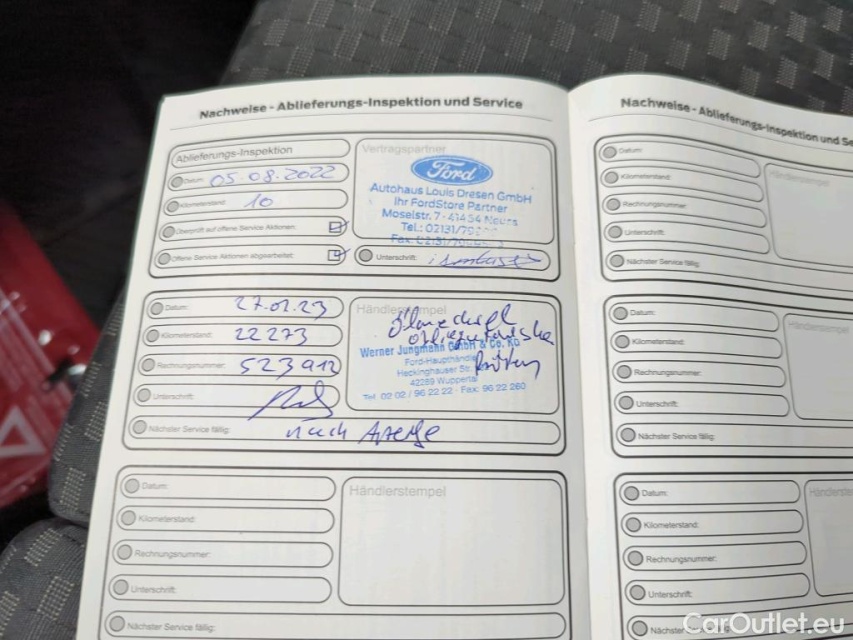 Nachweise - Ablieferungs-Inspektion und Service
Ablieferungs-Inspektion
Datum: 05.08.2022
Kilometerstand: 10
Überprüft auf offene Service Aktionen:
Offene Service Aktionen abgearbeitet:
Vertragspartner
Ford
Autohaus Louis Dresen GmbH
Ihr FordStore Partner
Moselstr. 7 - 41464 Neuss
Tel.: 02131/70
Fax: 02131/70
Unterschrift:
Datum: 27.01.23
Kilometerstand: 22273
Rechnungsnummer: 523912
Unterschrift:
Nächster Service fällig: nach Anzeige
Händlerstempel
Ölwechsel
Werner Jungmann GmbH & Co. KG
Ford-Haupthändler
Heckinghauser Str.
42289 Wuppertal
Tel. 02 02 / 96 22 22 · Fax: 96 22 260
Datum:
Kilometerstand:
Rechnungsnummer:
Unterschrift:
Nächster Service fällig:
Händlerstempel
Nachweise - Ablieferungs-Inspektion und Se
Datum:
Kilometerstand:
Rechnungsnummer:
Unterschrift:
Nächster Service fällig:
Händlerstempel
Datum:
Kilometerstand:
Rechnungsnummer:
Unterschrift:
Nächster Service fällig:
Händlerstempel
Datum:
Kilometerstand:
Rechnungsnummer:
Unterschrift:
Nächster Service
Händlerste
CarOutlet.eu